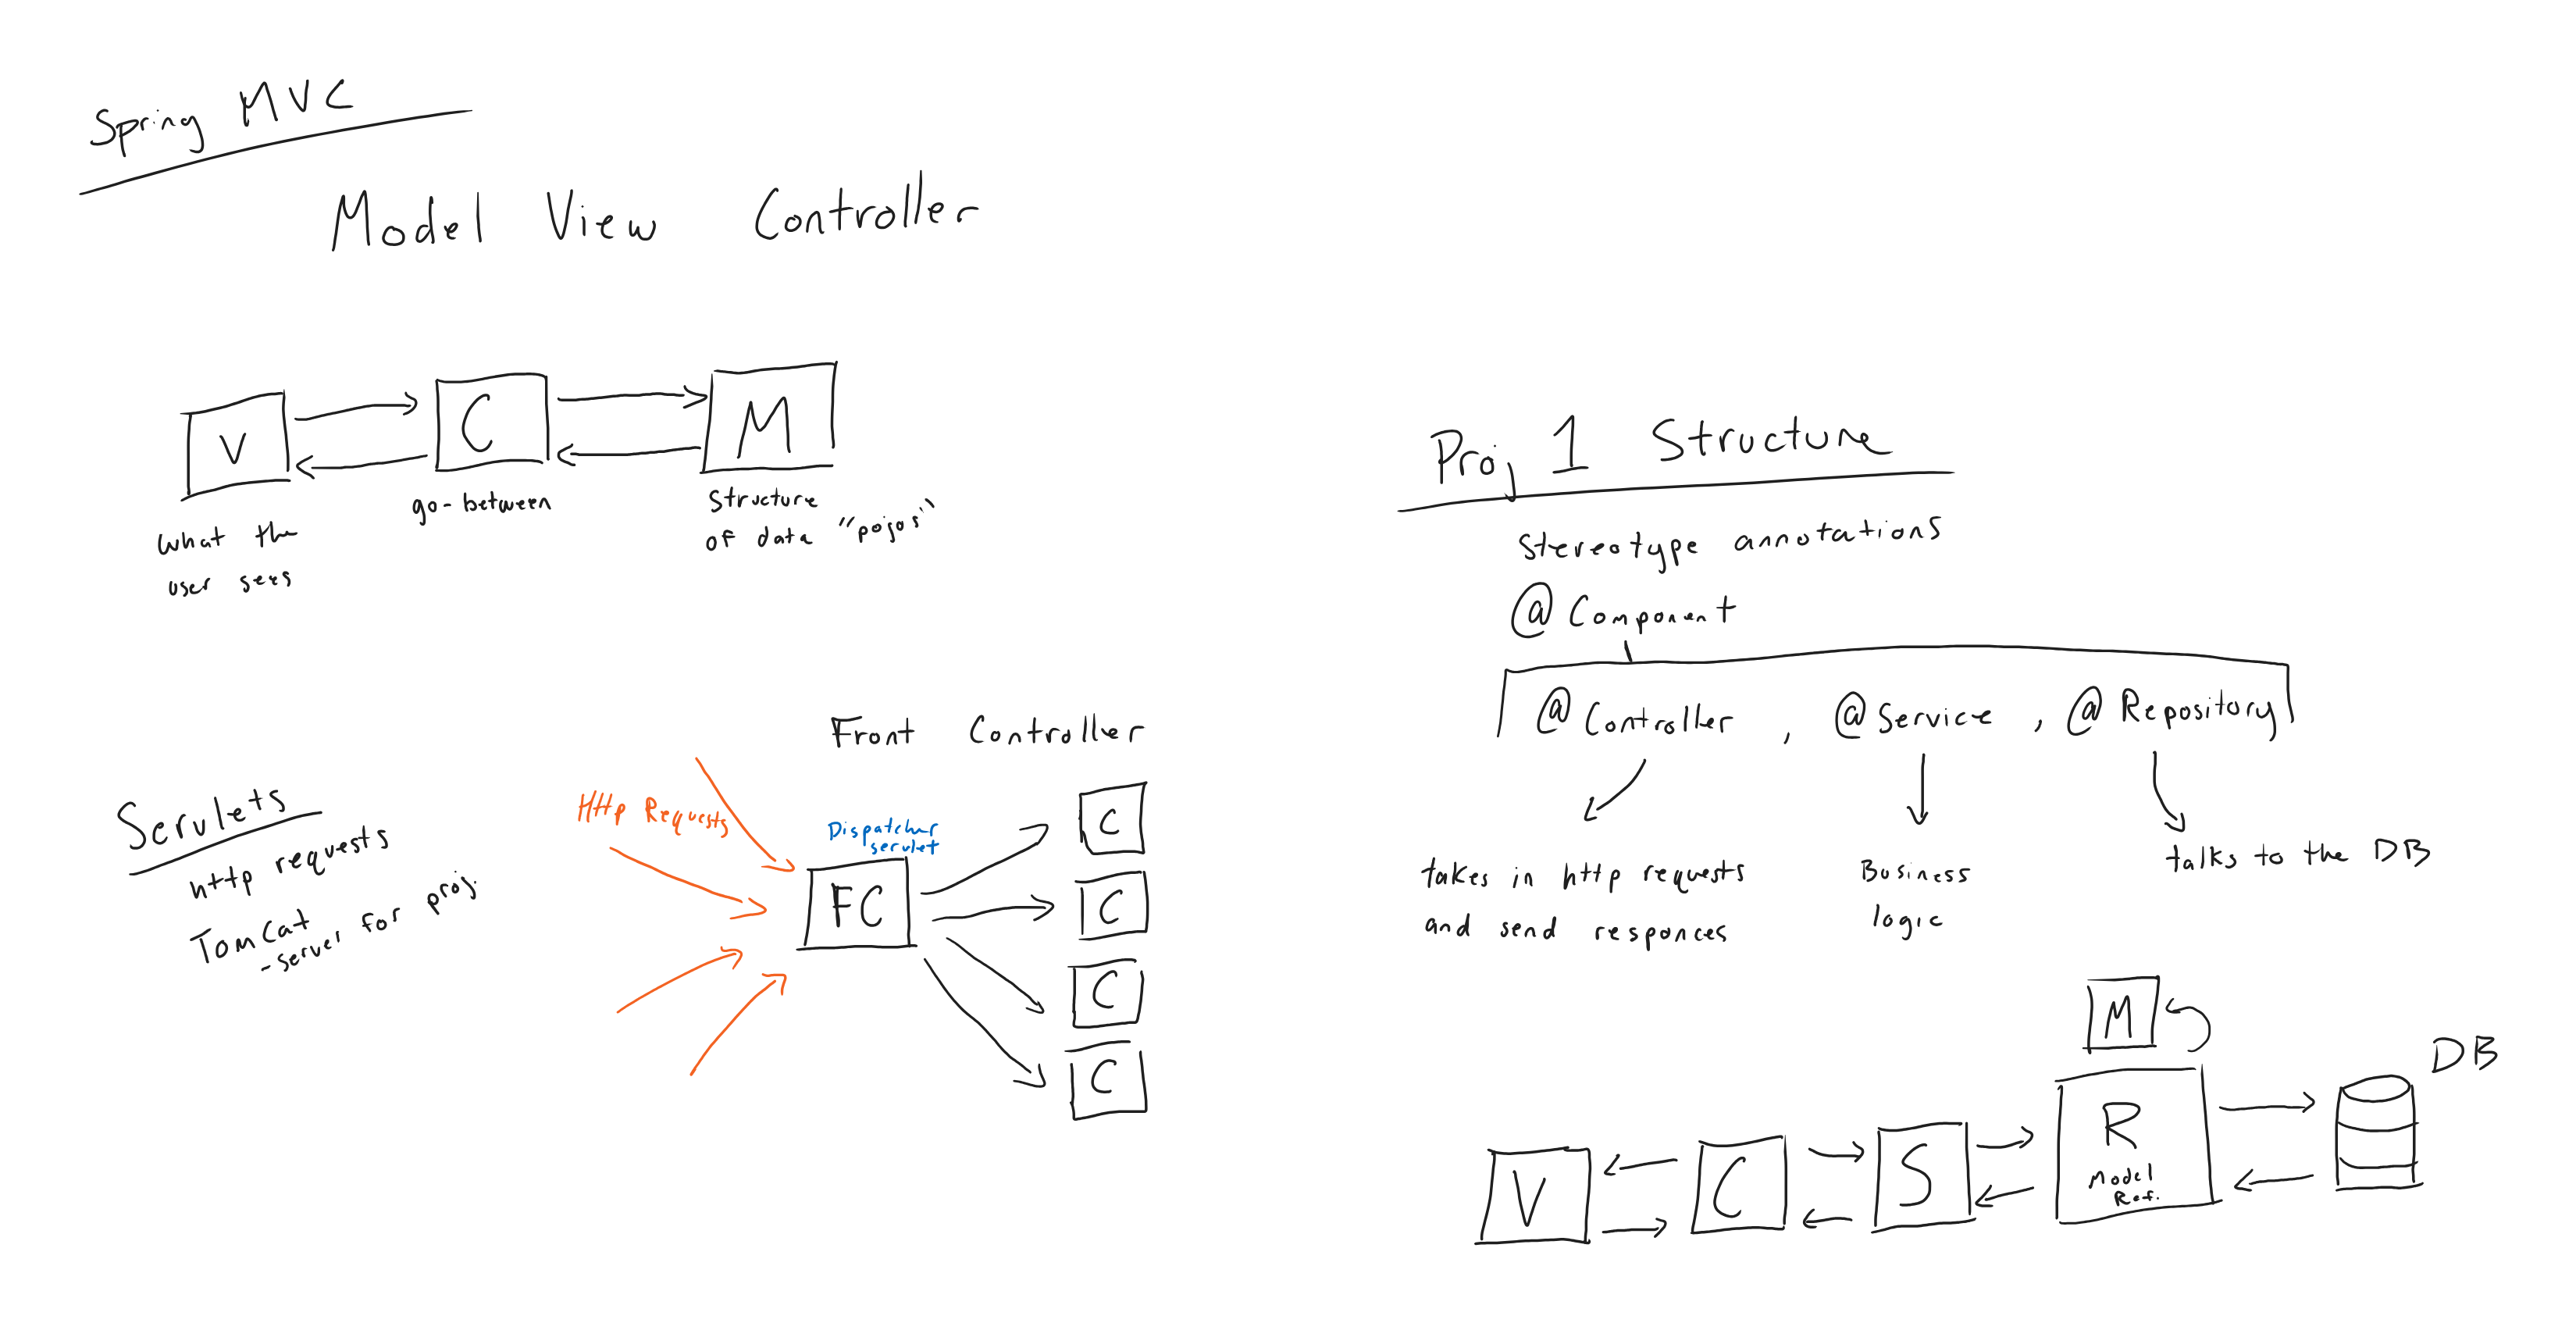 Spring MVC
Model View Controller
V
C
M
what the
user sees
go-between
Structure
of data "pojos"
Servlets
http requests
TomCat
-server for proj.
Front Controller
HHp Requests
Dispatcher
servlet
FC
C
C
C
C
Proj 1 Structure
Stereotype annotations
@ Component
@ Controller , @ Service , @ Repository
takes in http requests
and send responces
Business
logic
talks to the DB
M
DB
V
C
S
R
Model
Ref.